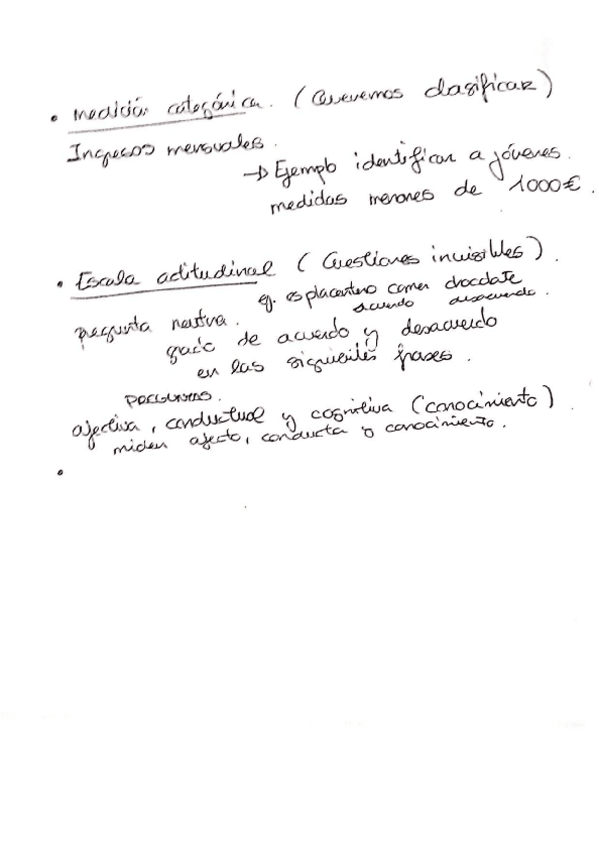 • Medición categórica. (Queremos clasificar)
Ingresos mensuales.
→ Ejemplo identificar a jóvenes.
medidas menores de 1000€.
• Escala actitudinal (Cuestiones invisibles).
eg. es placentero comer chocolate
pregunta neutra. acuerdo desacuerdo.
grado de acuerdo y desacuerdo
en las siguientes frases.
preguntas.
afectiva, conductual y cognitiva (conocimiento).
miden afecto, conducta y conocimiento.
•